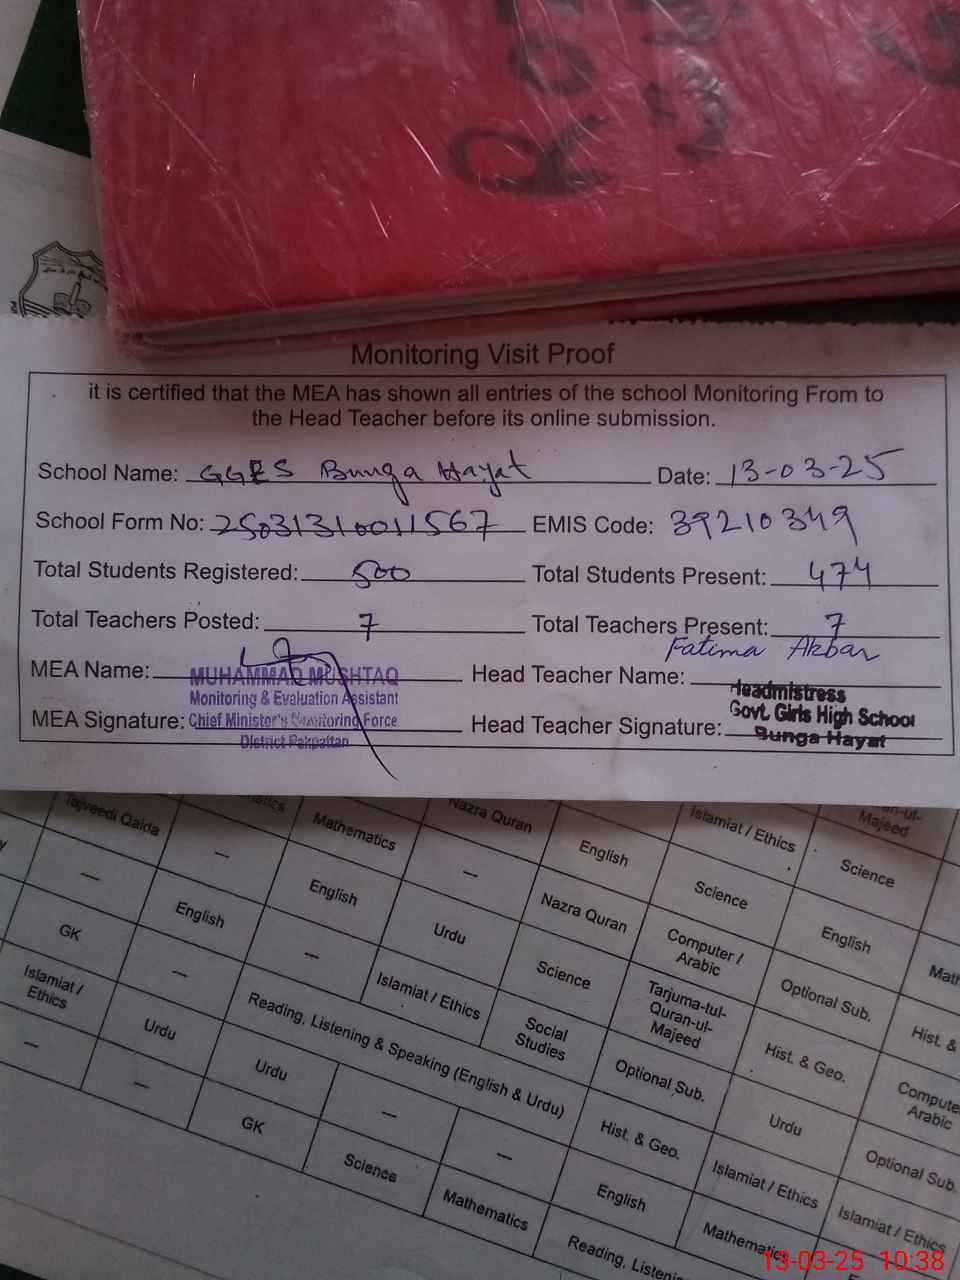 Monitoring Visit Proof
it is certified that the MEA has shown all entries of the school Monitoring From to
the Head Teacher before its online submission.
School Name: GGES Bunga Hayat Date: 13-03-25
School Form No: 25031310011567 EMIS Code: 39210349
Total Students Registered: 500 Total Students Present: 474
Total Teachers Posted: 7 Total Teachers Present: 7
MEA Name: MUHAMMAD MUSHTAQ Head Teacher Name: Fatima Akbar
Monitoring & Evaluation Assistant Headmistress
MEA Signature: Chief Minister's Monitoring Force Head Teacher Signature: Govt. Girls High School
District Pakpattan Bunga Hayat
Tajveedi Qaida Mathematics Nazra Quran Islamiat / Ethics Majeed
— — English Science
— English — Science
GK English Urdu Nazra Quran Computer / Arabic English
Islamiat / Ethics — — Islamiat / Ethics Science Tarjuma-tul-Quran-ul-Majeed Optional Sub. Hist. &
— Urdu Reading, Listening & Speaking (English & Urdu) Social Studies Optional Sub. Hist. & Geo. Arabic
— Urdu — — Hist. & Geo. Urdu Optional Sub.
GK Science Mathematics English Islamiat / Ethics Islamiat / Ethics
Reading, Mathematics
13-03-25 10:38